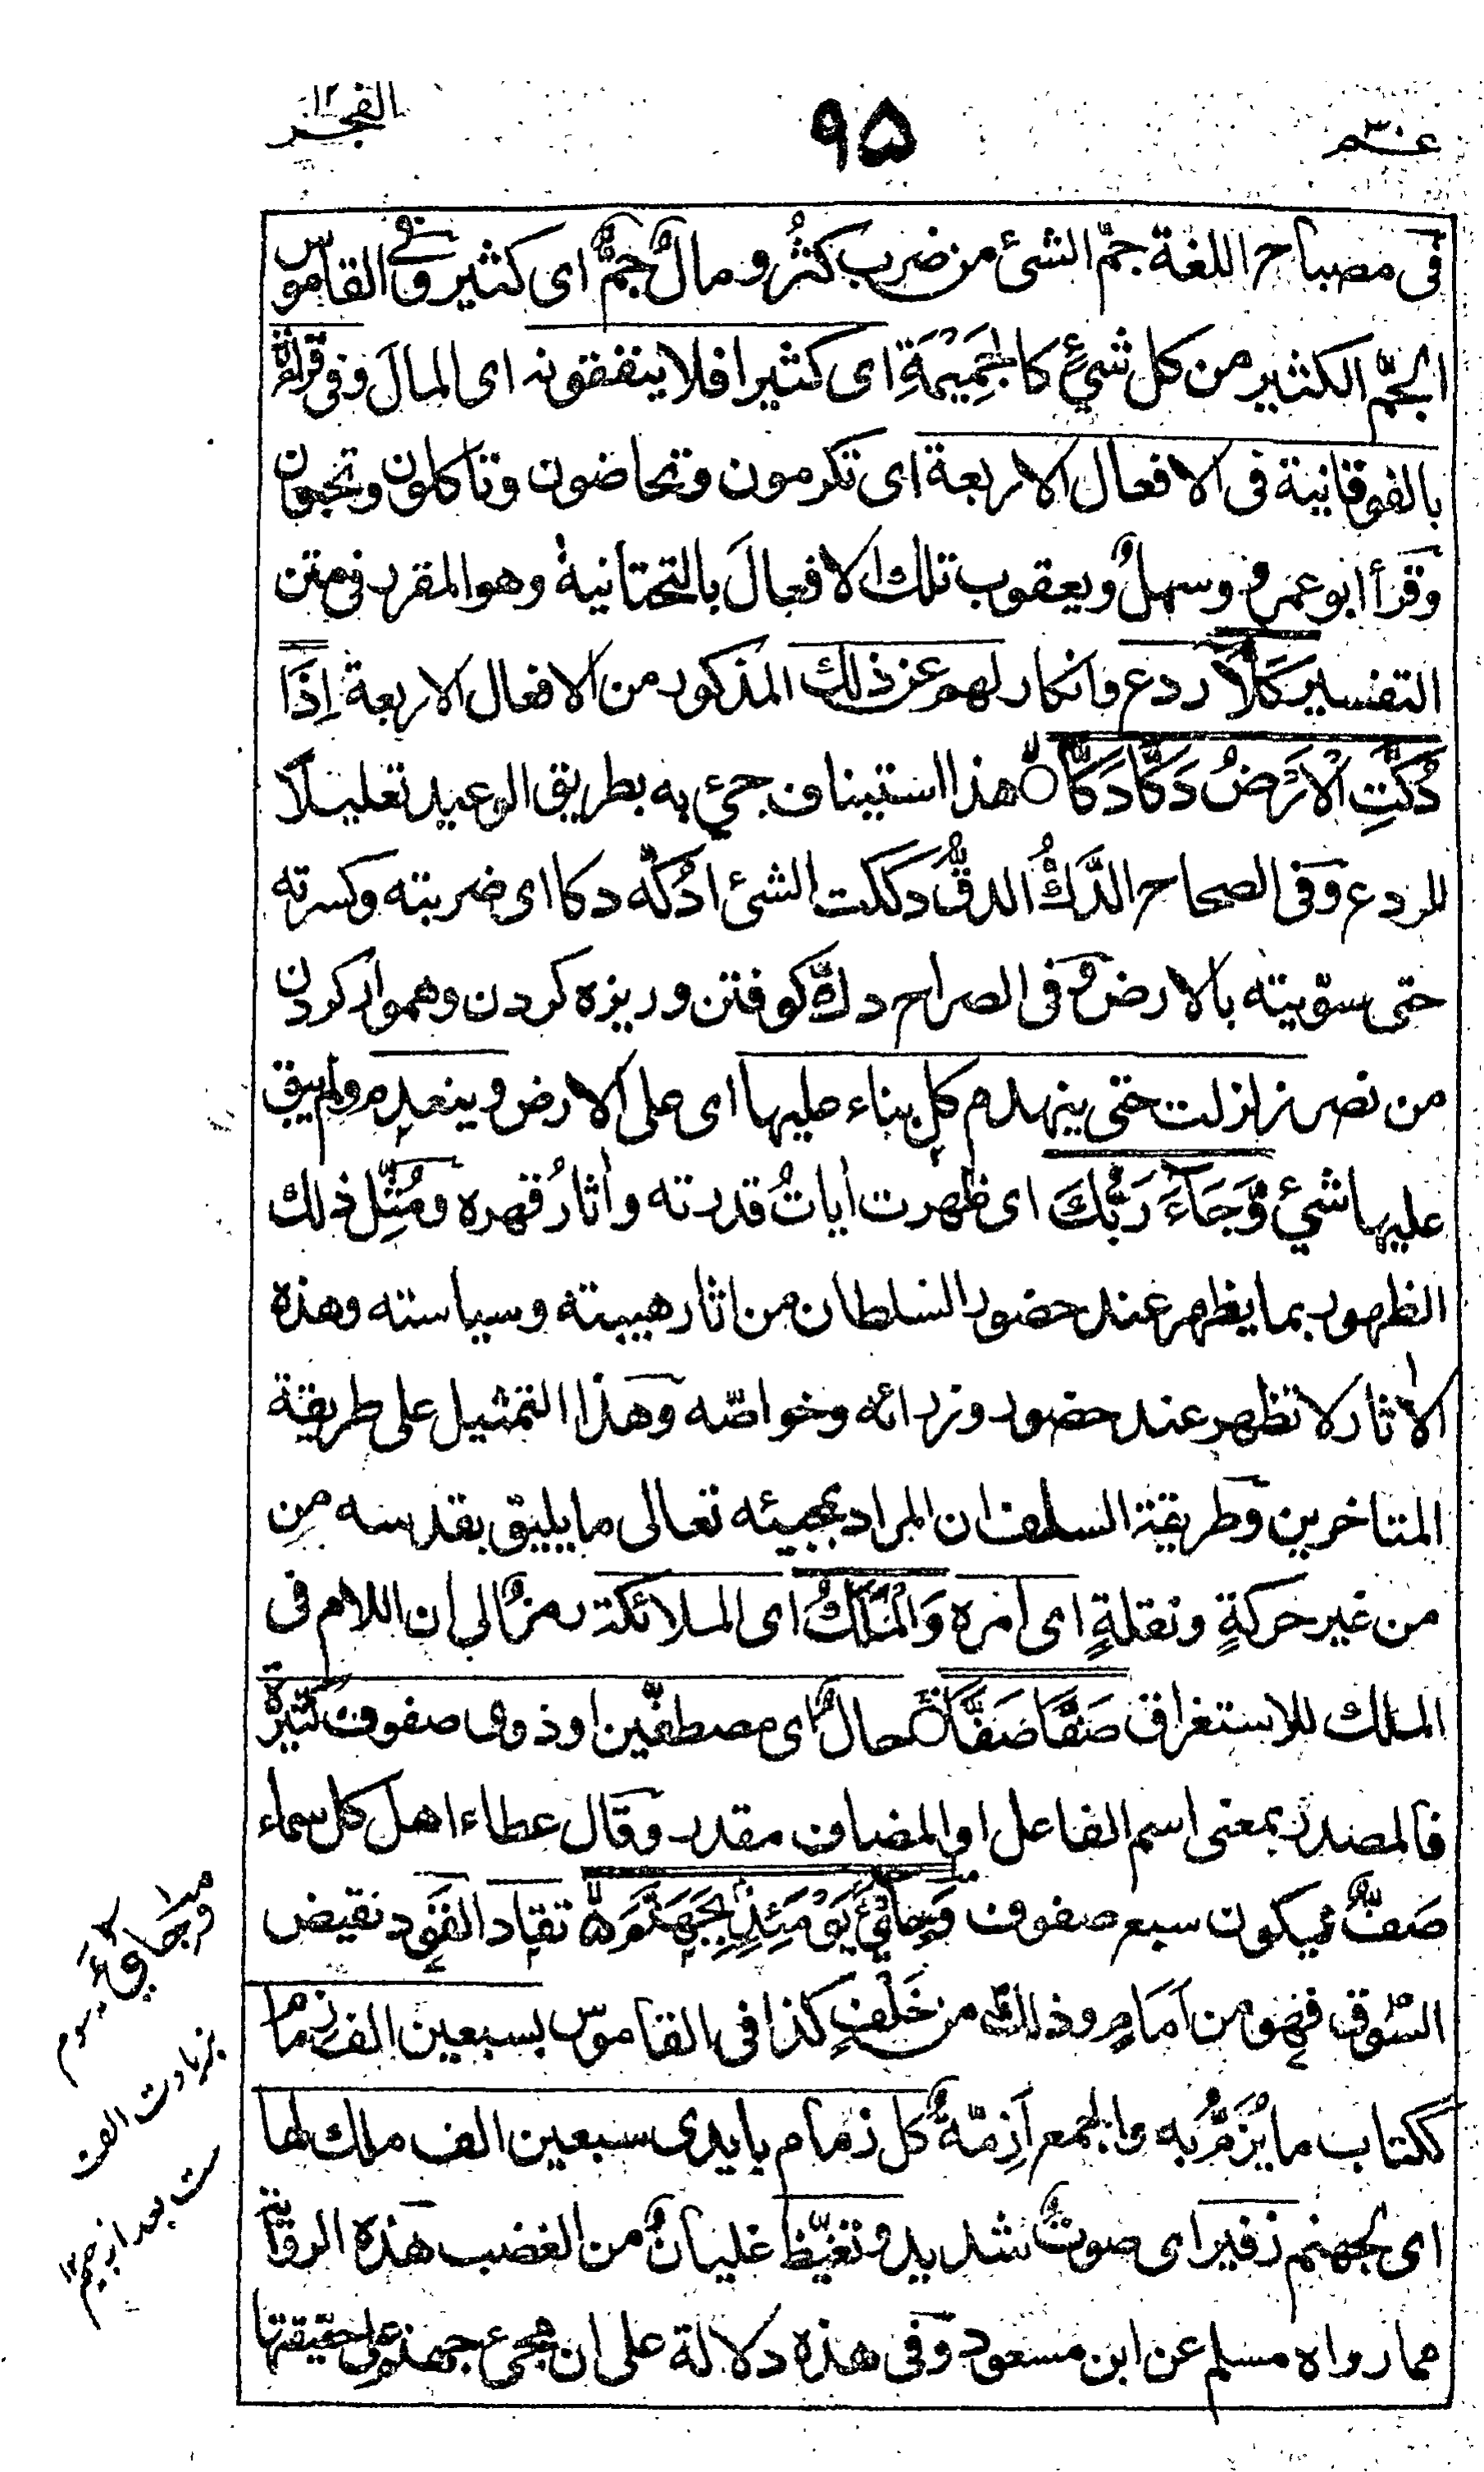 عم ٣٠
٩٥
الفجر
فى مصباح اللغة جمّ الشئ من ضرب كثُر و مالٌ جمٌّ اى كثير وفى القاموس
الجمّ الكثير من كل شئٍ كالجَمِيمَةِ اى كثيرا فلا ينفقونه اى المالَ وفى قراءة
بالفوقانية فى الافعال الاربعة اى تكرمون وتحاضون وتاكلون وتحبون
وقرأ ابو عمرو وسهلٌ ويعقوب تلك الافعالَ بالتحتانية وهو المقرر فى متن
التفسير كَلَّا ردع وانكار لهم عن ذلك المذكور من الافعال الاربعة اِذَا
دُكَّتِ الْاَرْضُ دَكًّا دَكًّا هذا استيناف جئ به بطريق الوعيد تعليلًا
للردع وفى الصحاح الدَّكُّ الدقُّ دككت الشئ ادُكّه دكا اى ضربته وكسرته
حتى سوّيته بالارض وفى الصراح دكٌّ كوفتن وريزه كردن وهموار كردن
من نصر زلزلت حتى ينهدم كل بناء عليها اى على الارض وينعدم ولم يبق
عليها شئ وَّجَآءَ رَبُّكَ اى ظهرت اٰياتُ قدرته واٰثارُ قهره ومُثِّل ذلك
الظهور بما يظهر عند حضور السلطان من اٰثار هيبته وسياسته وهذه
الاٰثار لا تظهر عند حضور وزرائه وخواصّه وهذا التمثيل على طريقة
المتاخرين وطريقة السلف ان المراد بمجيئه تعالى ما يليق بقدسه مِن
من غير حركةٍ ونقلةٍ اى امره وَالْمَلَكُ اى الملائكة رمزٌ الى ان اللام فى
الملك للاستغراق صَفًّا صَفًّا حالٌ اى مصطفّين او ذوى صفوف كثيرة
فالمصدر بمعنى اسم الفاعل او المضاف مقدر وقال عطاء اهل كل سماء
صَفٌّ فيكون سبع صفوف وَجِاىْٓءَ يَوْمَئِذٍۭ بِجَهَنَّمَ تقاد القَوَد نقيض
السَّوق فهو من اَمَامٍ وذلك من خَلْفٍ كذا فى القاموس بسبعين الف زمام
ككتاب ما يُزَمُّ به والجمع اَزِمّةٌ كل زمام بايدى سبعين الف ملك لها
اى لجهنم زفير اى صوتٌ شديد وتغيّظ غليانٌ من الغضب هذه الرواية
مما رواه مسلم عن ابن مسعود وفى هذه دلالة على ان مجئ جهنم على حقيقتها
بزيادت الف
ست بعد از جيم ١٢